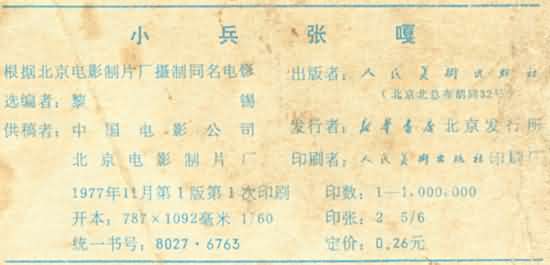 小兵张嘎
根据北京电影制片厂摄制同名电影
选编者：黎　锡
供稿者：中国电影公司
北京电影制片厂
1977年11月第1版第1次印刷
开本：787×1092毫米 1/60
统一书号：8027·6763
出版者：人民美术出版社
（北京北总布胡同32号）
发行者：新华书店北京发行所
印刷者：人民美术出版社印刷厂
印数：1—1,000,000
印张：2 5/6
定价：0.26元